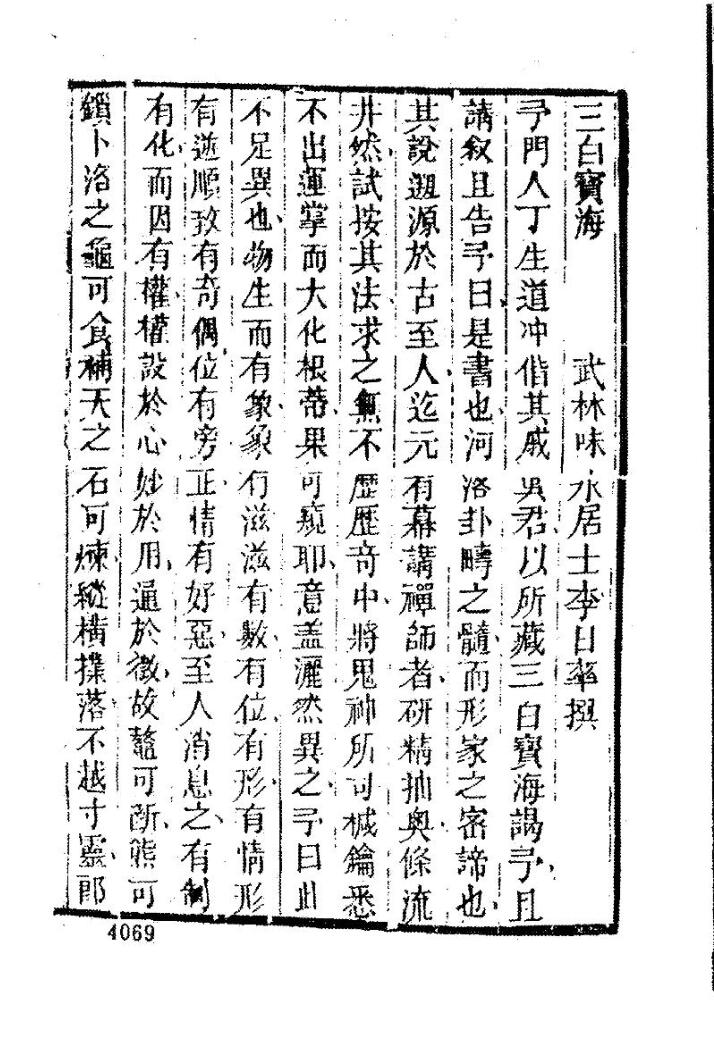 三白寶海　武林味水居士李日華撰
予門人丁生道冲偕其戚吳君以所藏三白寶海謁予且
請叙且告予曰是書也河洛卦疇之髓而形家之密諦也
其說遡源於古至人迄元有幕講禪師者研精抽奧條流
井然試按其法求之無不歷歷竒中將鬼神所司椷鑰悉
不出運掌而大化根蔕果可窺耶意盖灑然異之予曰此
不足異也物生而有象象有滋滋有數有位有形有情形
有逆順致有奇偶位有旁正情有好惡至人消息之有制
有化而因有權權設於心妙於用通於微故鼇可斷熊可
鎖卜洛之龜可食補天之石可煉縱橫揲落不越寸靈郎
4069